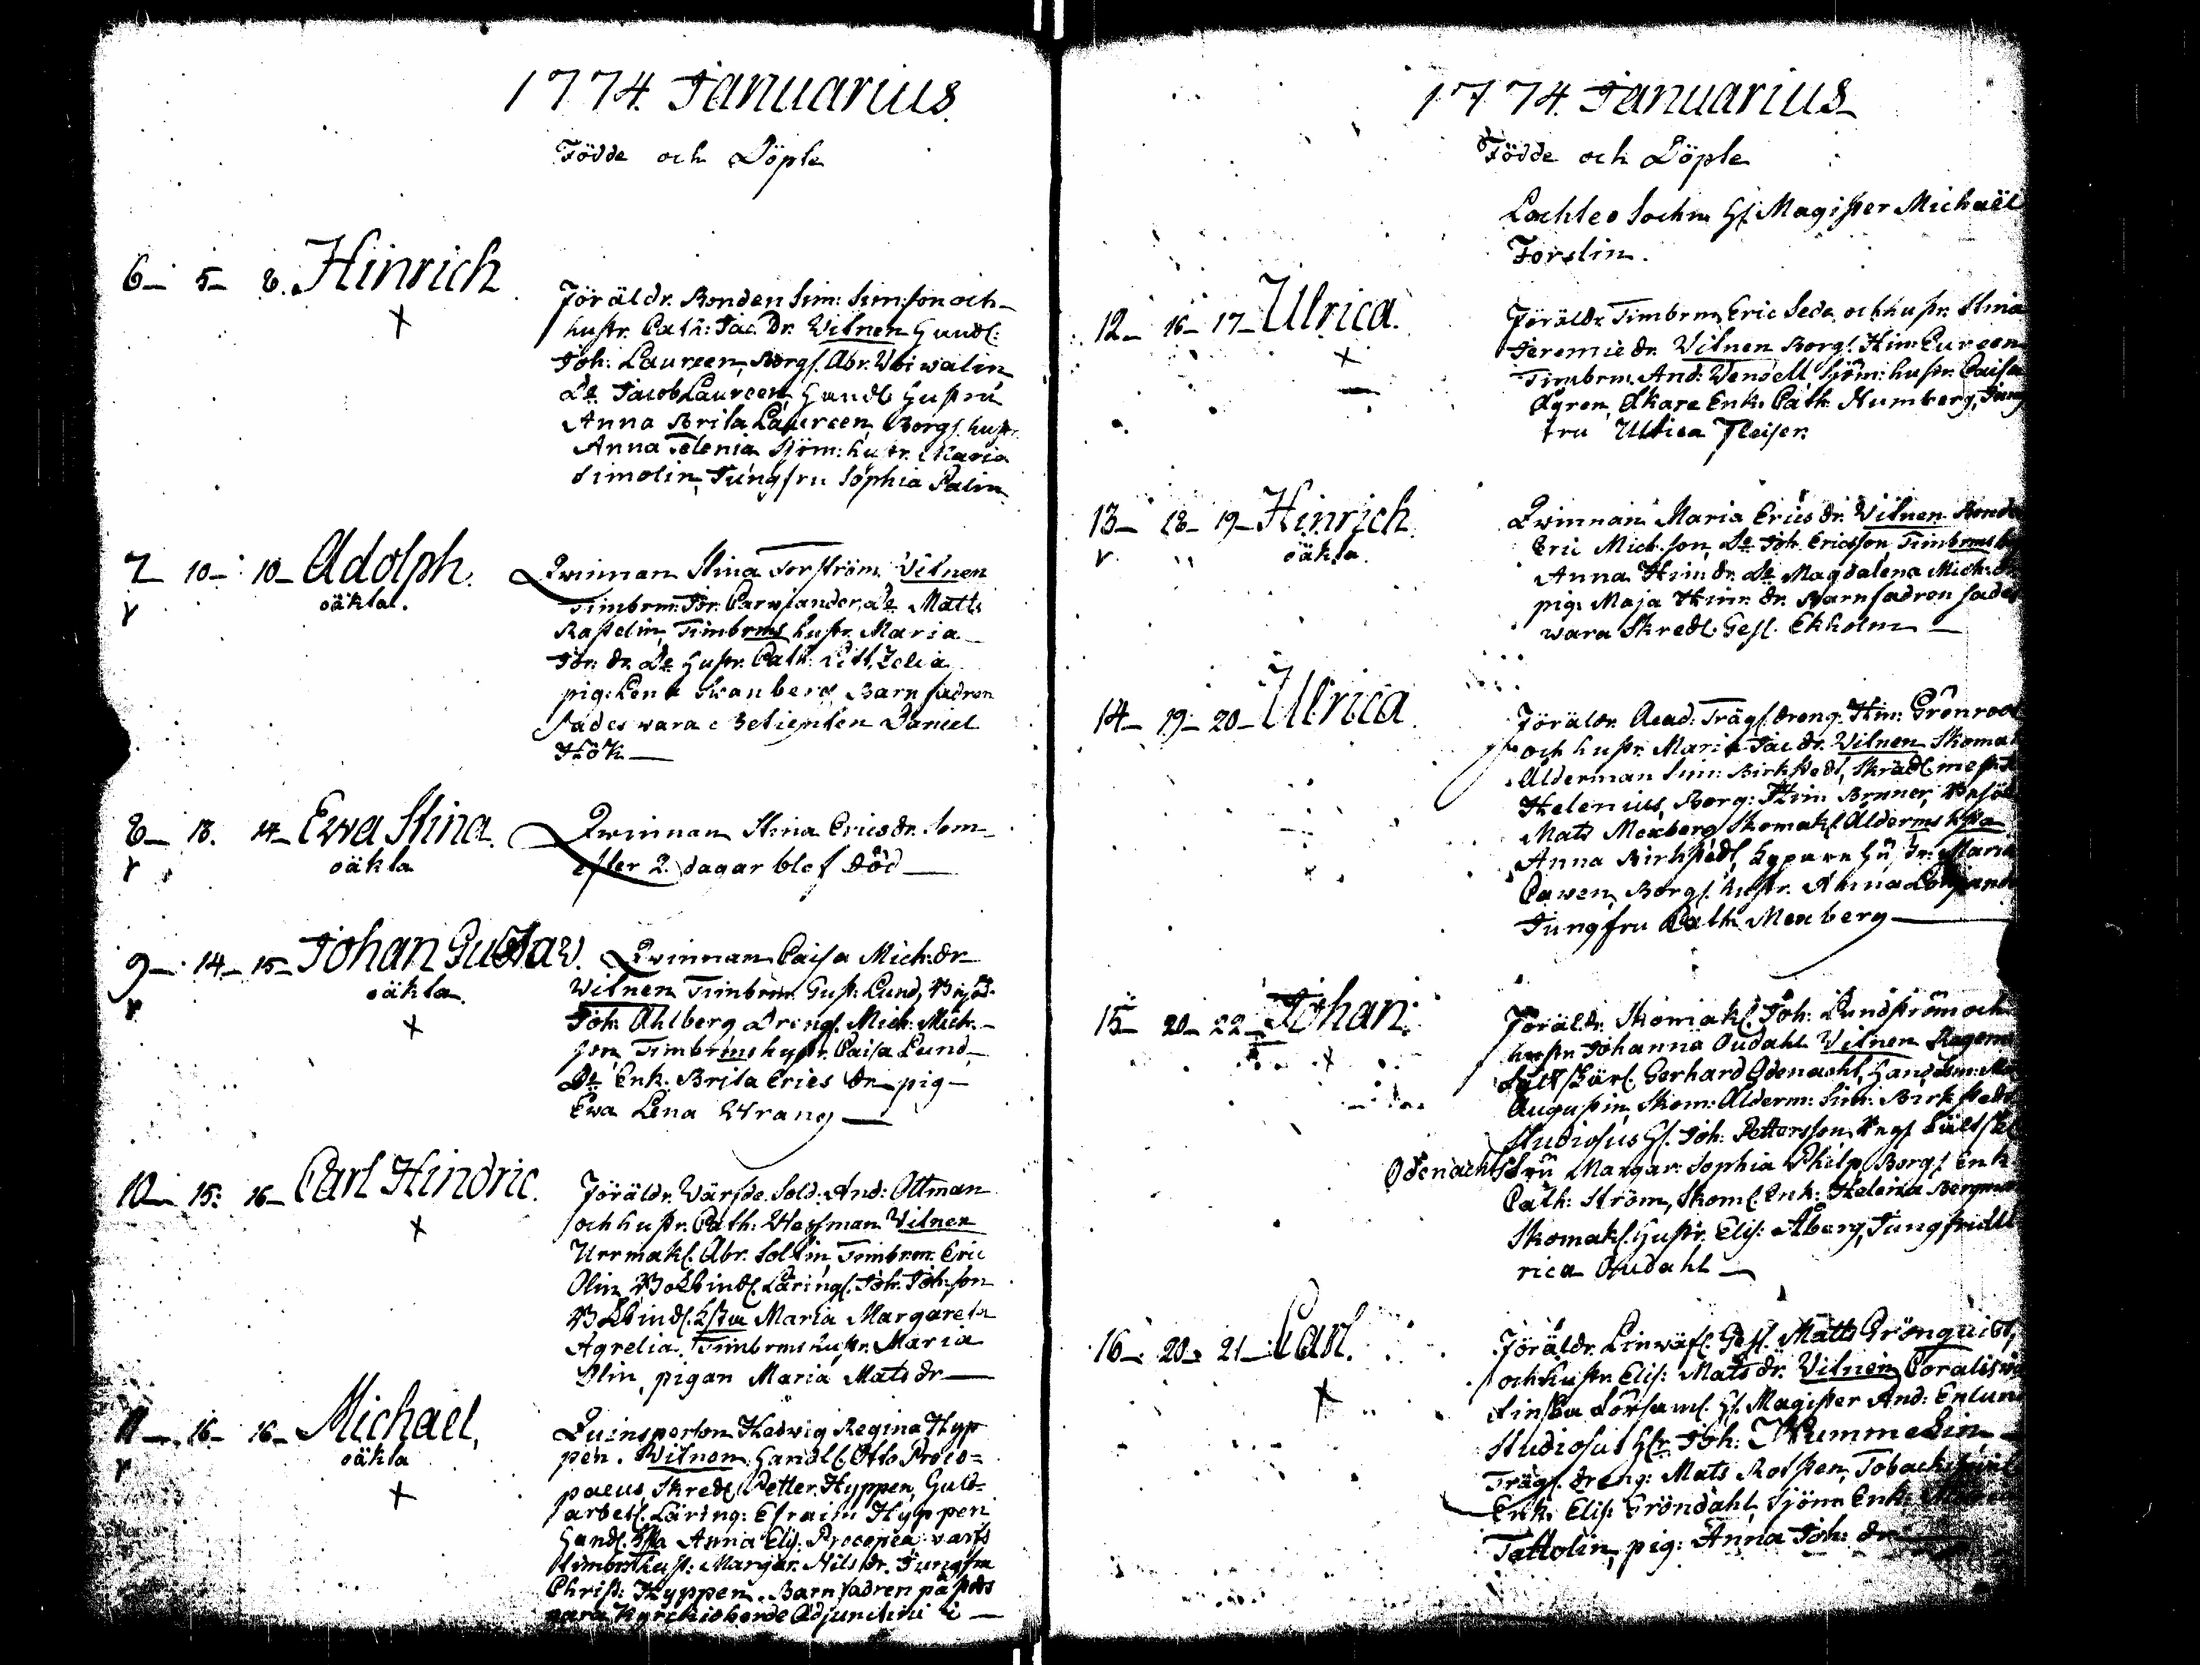 1774. Januarius.
Födde och Döpte
6— 5— 8. Hinrich
Föräldr. Bonden Sim: Simson och
hustr. Cath: Jac. dr. Vitnen Handl:
Joh: Laureen, Borgs. Abr. Widwalin
Do Jacob Laureen, Handls Hustru
Anna Brita Laureen, Borgs. hustr.
Anna Telenia Sjöm: hustr. Maria
Simolin, Jungfru Sophia Palin
7 10— 10— Adolph.
oäkta.
Qwinnan Stina Forsström. Vitnen
Timbrm: Jör. Do Matts
Timbrms hustr. Maria
Jör. dr. Do Hustr. Cath:
pig: Lena Swanberg Barnfadren
sades wara Betienten Daniel
Hök—
8— 13. 14— Ewa Stina.
oäkta
Qwinnan Stina Erics dr. som
efter 2. dagar blef död—
9— 14— 15— Johan Gustaw.
oäkta.
Qwinnan Caisa Mich: dr.
Vitnen Timbrm. Gust. Lund,
Joh: Ahlberg Drengs. Mich: Mich:
son, Timbrms hustr. Caisa Lund
Do Enk. Brita Erics dr. pig—
Ewa Lena Wrang—
10— 15: 16— Carl Hindric.
Föräldr. Wärfde Sold: And: Ottman
och hustr. Cath: Wessman Vitnen
Urrmak. Abr. Timbrm. Eric
Olin, Bokbinds. Lärings. Joh: Johson
Bokbinds. Maria Margareta
Agrelia. Timbrms hustr. Maria
Olin, pigan Maria Mats dr—
11— 16— 16— Michael.
oäkta
Quinsperson Hedwig Regina Hyp
pen. Vitnen Handl. Otto Proco=
paeus, Skredd. Petter Hyppen, Guld=
arbet. Läring: Efraim Hyppen
Handl. Anna Elis. Procopea
Timbrms hust: Margar. Nils dr. Jungfru
Christ: Hyppen. Barnfadren påstods
wara Kyrckioherde Adjuncten i—
1774. Januarius—
Födde och Döpte
Lochteo Sochn Hr. Magister Michaël
Forslin.
12— 16— 17— Ulrica.
Föräldr. Timbrm. Eric Sede och hustr. Stina
Jeremie dr. Vitnen Borgs. Hin: Eureen
Timbrm. And: Wendell, Sjöm: hustr. Caisa
Ågren, Åkare Enk. Cath: Humberg, Jung
fru Ulrica Fleiser.
13— 18— 19— Hinrich.
oäkta.
Qwinnan Maria Erics dr. Vitnen Bonde
Eric Mich. son, Do Joh. Ericsson Timbrms
Anna Hin: dr. Do Magdalena Mich: dr
pig: Maja Hinr. dr. Barnfadren sades
wara Skredd. Gesl. Ekholm—
14— 19— 20— Ulrica.
Föräldr. Acad: Trägs. dreng. Hin: Grönroos
och hustr. Maria Jac dr. Vitnen Skomak
Ålderman Sim: Birkstedt, Skrädd. mest
Helenius, Borg: Hin: Bruner,
Mats Mexberg, Skomak. Ålderms
Anna Birkstedt, Maria
Cawen, Borgs. hustr. Anna
Jungfru Cath: Mexberg—
15— 20— 22— Johan.
Föräldr. Skomak. Joh: Lundström och
hustr. Johanna Oudahl. Vitnen
Gerhard Odenacht,
Augustin, Skom: Ålderm: Sim: Birkstedt
Studiosus Hr. Joh: Pettersson,
Odenachts Fru Margar: Sophia Philp, Borgs. Enk.
Cath: Ström, Skom. Enk: Helena
Skomak. Hustr. Elis: Åberg, Jungfru Ul
rica Oudahl—
16— 20— 21— Carl.
Föräldr. Linwäf. Gesl. Matts Grönquist,
och hustr. Elis: Mats dr. Vitnen
Finska Församl. Hr. Magister And: Enlund
Studiosus Hr. Joh: Kummelin—
Trägs. dreng: Mats Tobacks
Enk. Elis: Gröndahl, Sjöm Enk:
Tattolin, pig: Anna Joh: dr—